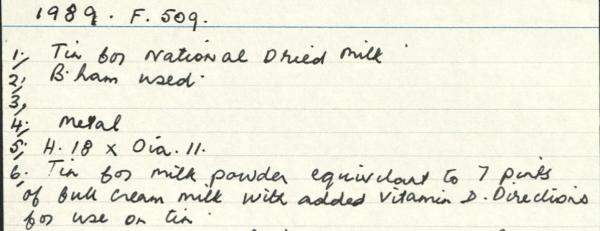 1989. F. 509.
1, Tin for National Dried Milk
2, B'ham used.
3,
4, Metal
5, H. 18 x Dia. 11.
6. Tin for milk powder equivalent to 7 pints
of full cream milk with added Vitamin D. Directions
for use on tin